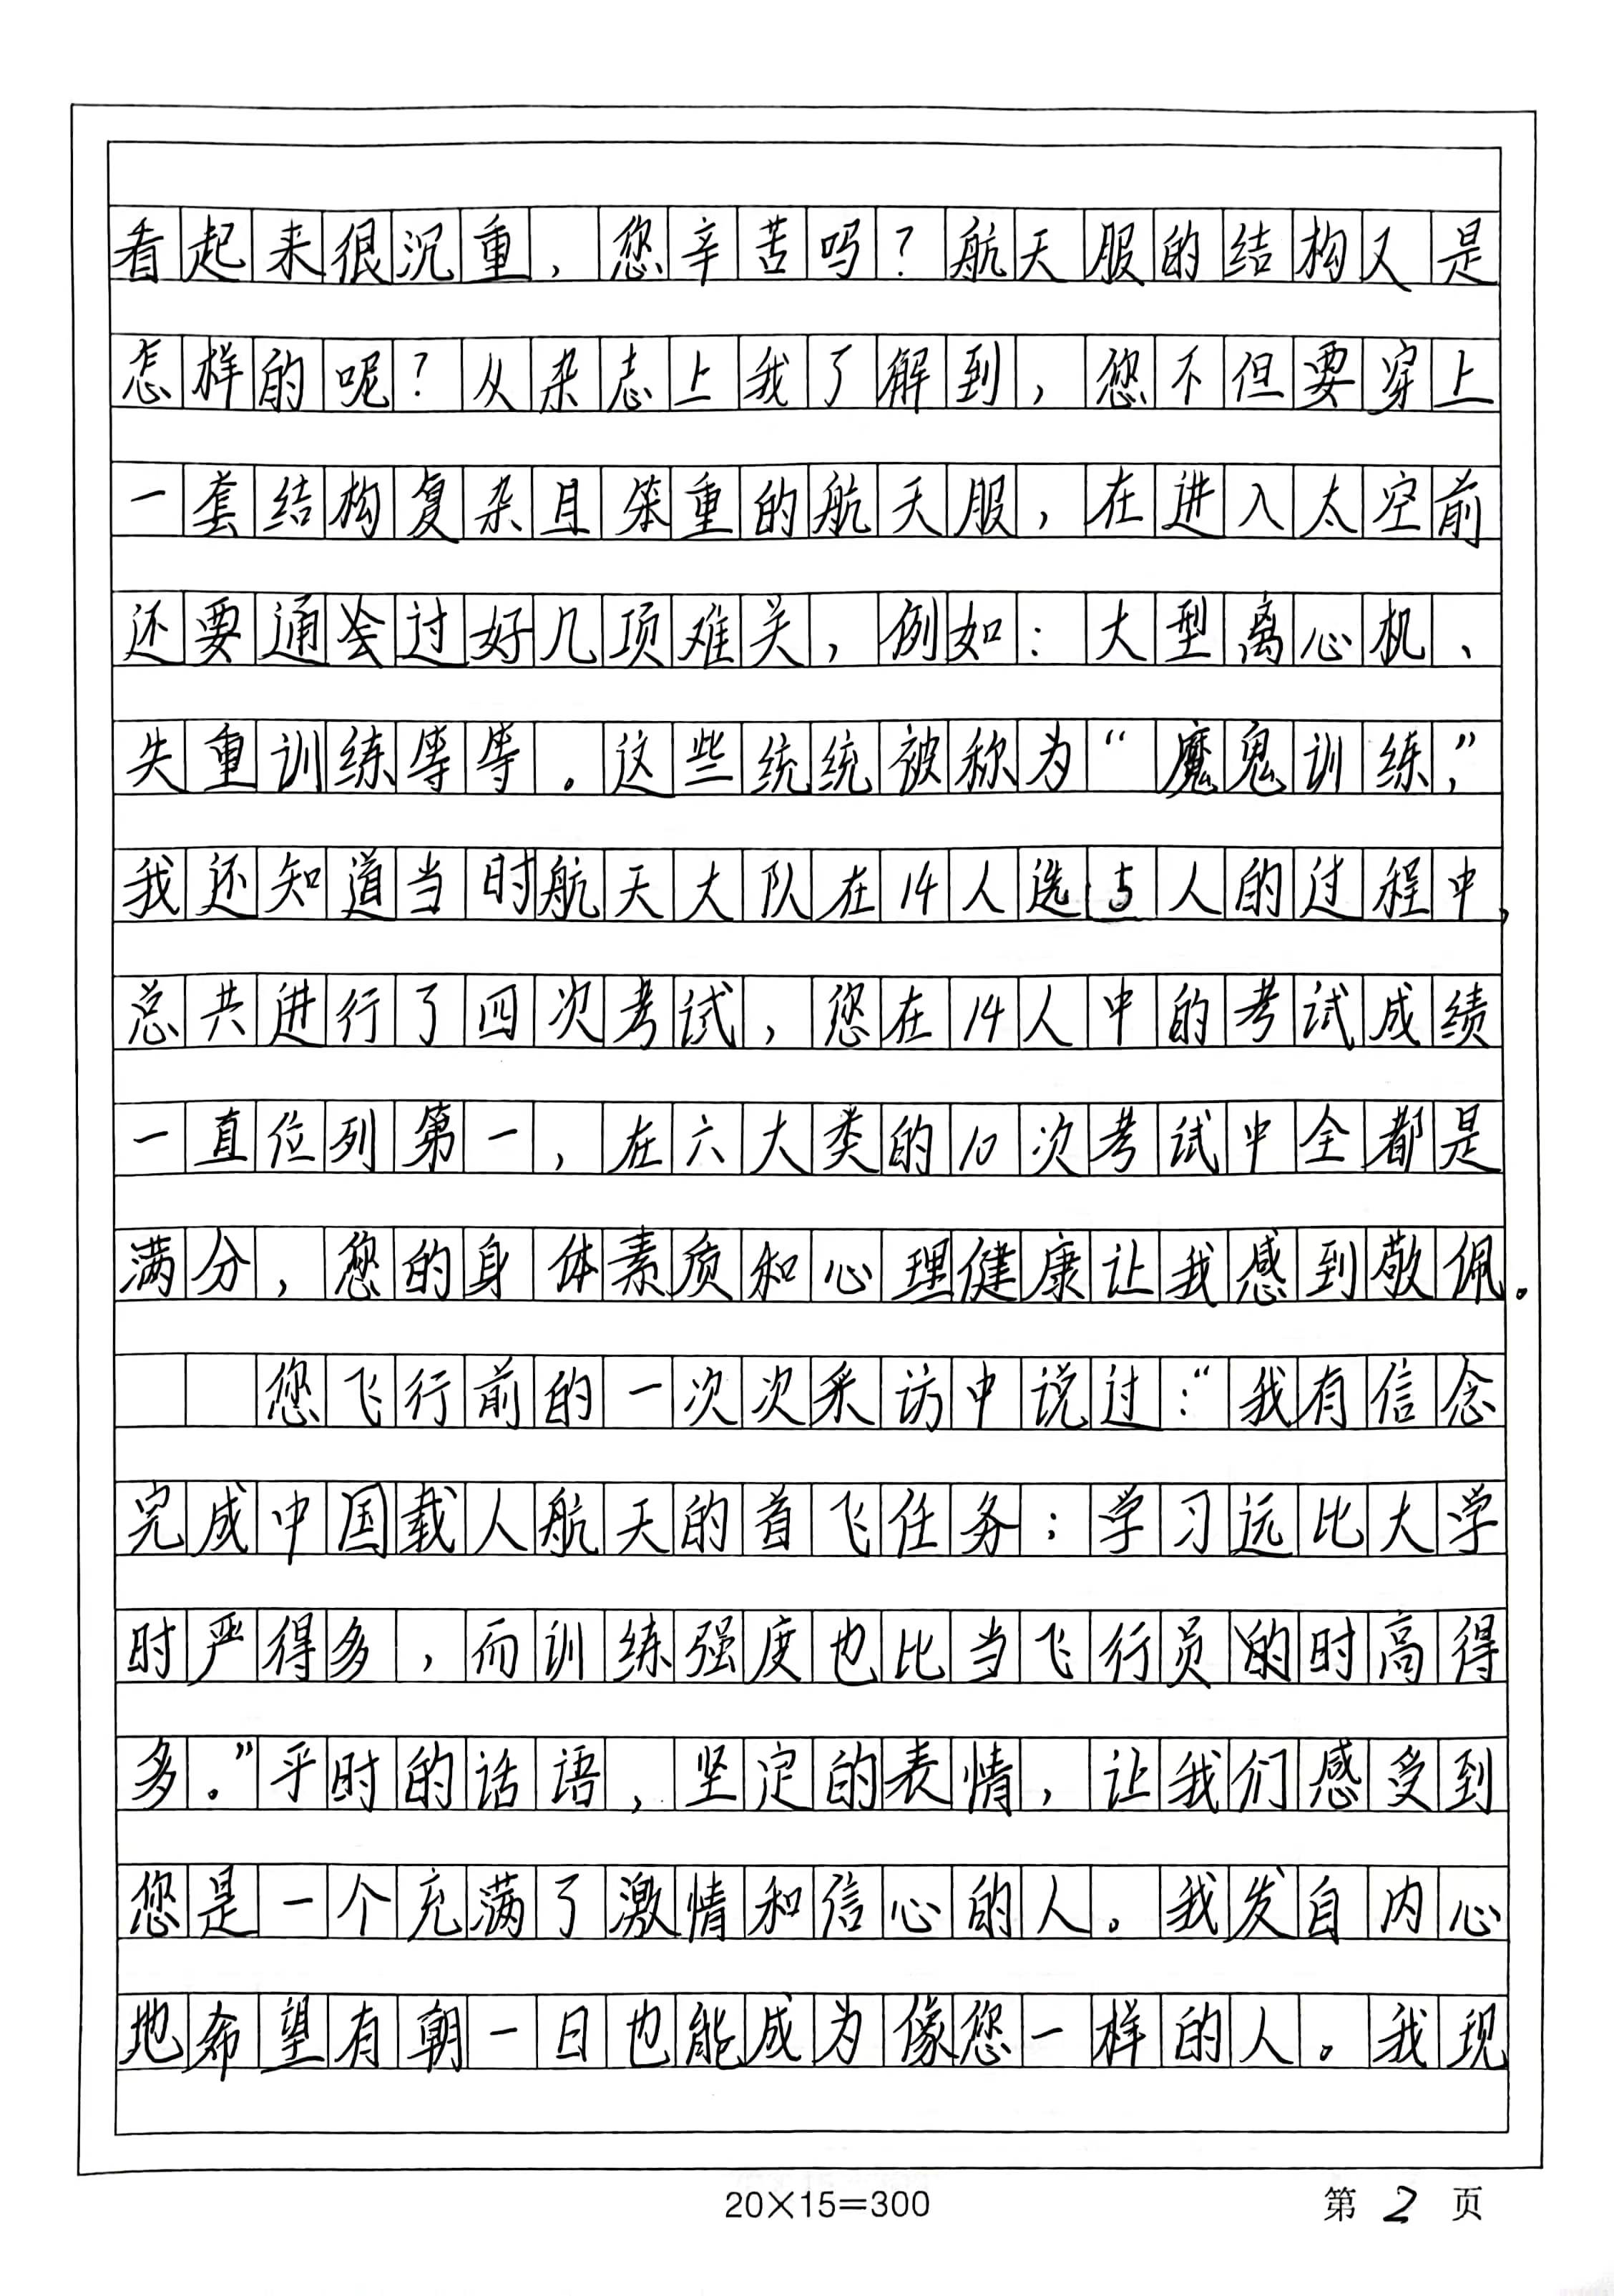 看起来很沉重，您辛苦吗？航天服的结构又是
怎样的呢？从杂志上我了解到，您不但要穿上
一套结构复杂且笨重的航天服，在进入太空前
还要通过好几项难关，例如：大型离心机、
失重训练等等。这些统统被称为“魔鬼训练，”
我还知道当时航天大队在14人选5人的过程中，
总共进行了四次考试，您在14人中的考试成绩
一直位列第一，在六大类的10次考试中全都是
满分，您的身体素质和心理健康让我感到敬佩。
您飞行前的一次次采访中说过：“我有信念
完成中国载人航天的首飞任务；学习远比大学
时严得多，而训练强度也比当飞行员时高得
多。”平时的话语，坚定的表情，让我们感受到
您是一个充满了激情和信心的人。我发自内心
地希望有朝一日也能成为像您一样的人。我现
20×15=300 第2页